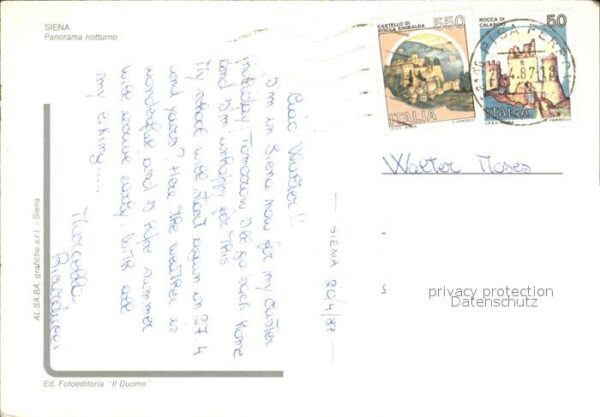 SIENA
Panorama notturno
CASTELLO DI
ROCCA SINIBALDA
550
ITALIA
ROCCA DI
CALASCIO
50
ITALIA
Ciao Walter!!
I'm in Siena now for my easter
holiday. Tomorrow I'll go back home
and I'm unhappy for this.
My school will start again in 27.4
and yours? Here the weather is
wonderful and I hope summer
will arrive early. With all
my
Marcella
— SIENA 20/4/87 —
Walter Moses
privacy protection
Datenschutz
AL.SA.BA. grafiche s.r.l. - Siena
Ed. Fotoeditoria "Il Duomo"